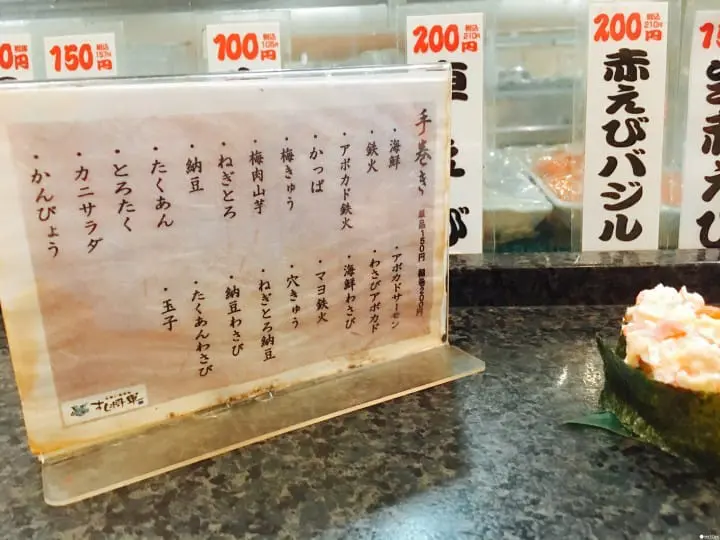 手巻き 単品150円 細巻200円
・海鮮
・鉄火
・アボカド鉄火
・かっぱ
・梅きゅう
・梅肉山芋
・ねぎとろ
・納豆
・たくあん
・とろたく
・カニサラダ
・かんぴょう
・アボカドサーモン
・わさびアボカド
・海鮮わさび
・マヨ鉄火
・穴きゅう
・ねぎとろ納豆
・納豆わさび
・たくあんわさび
・玉子
0円
150円 税込157円
100円 税込105円
200円 税込210円
えび
200円 税込210円
赤えびバジル
15
赤えび